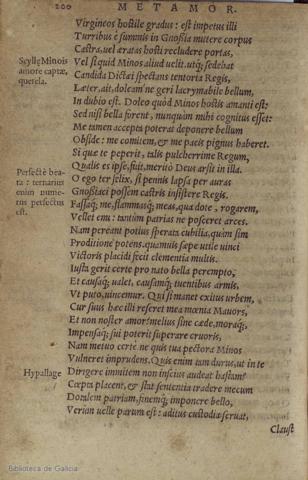 200 METAMOR.
Virgineos hostile gradus: est impetus illi
Turribus è summis in Gnosia mittere corpus
Castra, vel æratas hosti recludere portas,
Scyllę Minois
amore captæ,
querela.
Vel siquid Minos aliud velit. utq; sedebat
Candida Dictæi spectans tentoria Regis,
Læter, ait, doleam' ne geri lacrymabile bellum,
In dubio est. Doleo quòd Minos hostis amanti est:
Sed nisi bella forent, nunquam mihi cognitus esset:
Me tamen accepta poterat deponere bellum
Obside: me comitem, & me pacis pignus haberet.
Si quæ te peperit, talis pulcherrime Regum,
Perfectè bea-
ta: ternarius
enim nume-
rus perfectus
est.
Qualis es ipse, fuit, meritò Deus arsit in illa.
O ego ter felix, si pennis lapsa per auras
Gnosiaci possem castris insistere Regis.
Fassaq; me, flammasq; meas, qua dote, rogarem,
Vellet emi: tantùm patrias ne posceret arces.
Nam pereant potius sperata cubilia, quàm sim
Proditione potens. quamuis sæpe utile vinci
Victoris placidi fecit clementia multis.
Iusta gerit certe pro nato bella perempto,
Et causaq; ualet, causamq; tuentibus armis.
Vt puto, uincemur. Qui si manet exitus urbem,
Cur suus hæc illi reseret mea mœnia Mauors,
Et non noster amor? melius sine cæde, moraq;,
Impensaq; sui poterit superare cruoris,
Nam metuo certè ne quis tua pectora Minos
Vulneret imprudens. Quis enim tam durus, ut in te
Hypallage
Dirigere immitem non inscius audeat hastam?
Cœpta placent, & stat sententia tradere mecum
Dotalem patriam, finemq; imponere bello,
Verùm uelle parum est: aditus custodia seruat,
Claust
Biblioteca de Galicia